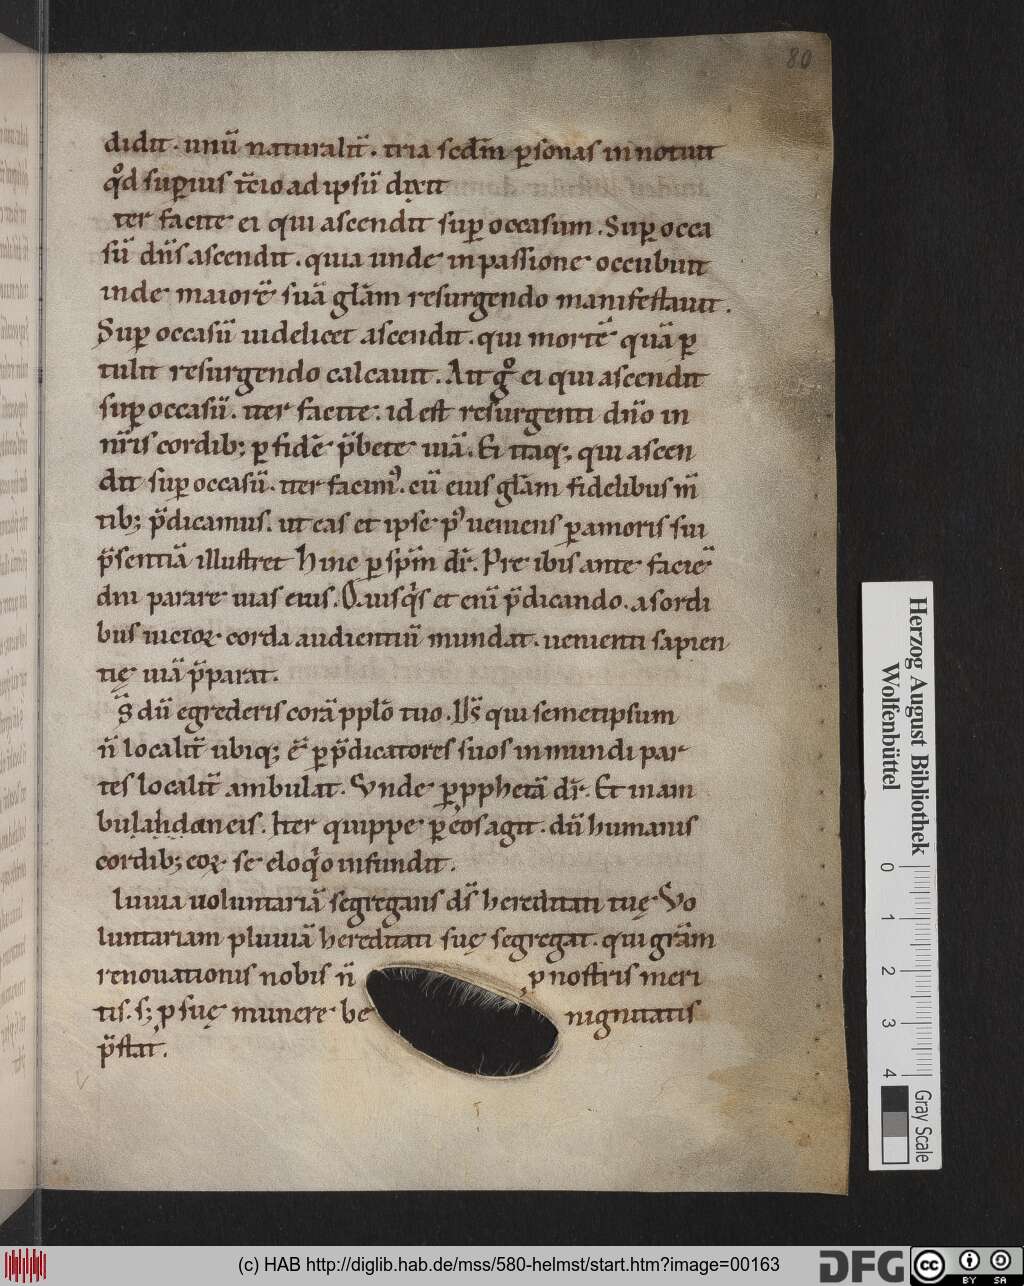 80
didit. unū naturalit̄. tria sed̄m ꝑsonas innotuit
qͦd suꝑius t̄cio ad ipsū dixit
ter facite ei qui ascendit suꝑ occasum. Suꝑ occa
sū dn̄s ascendit. quia unde in passione occubuit
inde maiorē suā glām resurgendo manifestauit.
Suꝑ occasū uidelicet ascendit. qui mortē quā ꝑ
tulit resurgendo calcauit. Ait gͦ ei qui ascendit
suꝑ occasū. iter facite: id est resurgenti dn̄o in
nr̄is cordib; ꝑ fidē p̄bete uiā. Ei itaq; qui ascen
dit suꝑ occasū. iter facimꝰ. cū eius glām fidelibus m̄
tib; p̄dicamus. ut eas et ipse pꝰ ueniens ꝑ amoris sui
p̄sentiā illustret Hinc ꝑ sp̄m dr̄. Pre ibis ante faciē
dn̄i parare uias eius. Quisqͥs et enī p̄dicando. a sordi
bus uictoꝝ corda audientiū mundat. uenienti sapien
tię uiā p̄parat.
S̄ dū egrederis corā pplō tuo. Ds̄ qui semetipsum
n̄ localit̄ ubiq; ē ꝑ p̄dicatores suos in mundi par
tes localit̄ ambulat. Unde ꝑ pphetā dr̄. Et inam
bulabo in eis. Iter quippe ꝑ eos agit. dū humanis
cordib; eoꝝ se eloqͥo infundit.
luuia uoluntariā segregans ds̄ hereditati tuę Uo
luntariam pluuiā hereditati suę segregat. qui grām
renouationis nobis n̄ ꝓ nostris meri
tis. s; ꝓ suę munere be nignitatis
p̄stat.
Herzog August Bibliothek
Wolfenbüttel
0 1 2 3 4
Gray Scale
(c) HAB http://diglib.hab.de/mss/580-helmst/start.htm?image=00163
DFG
cc BY SA